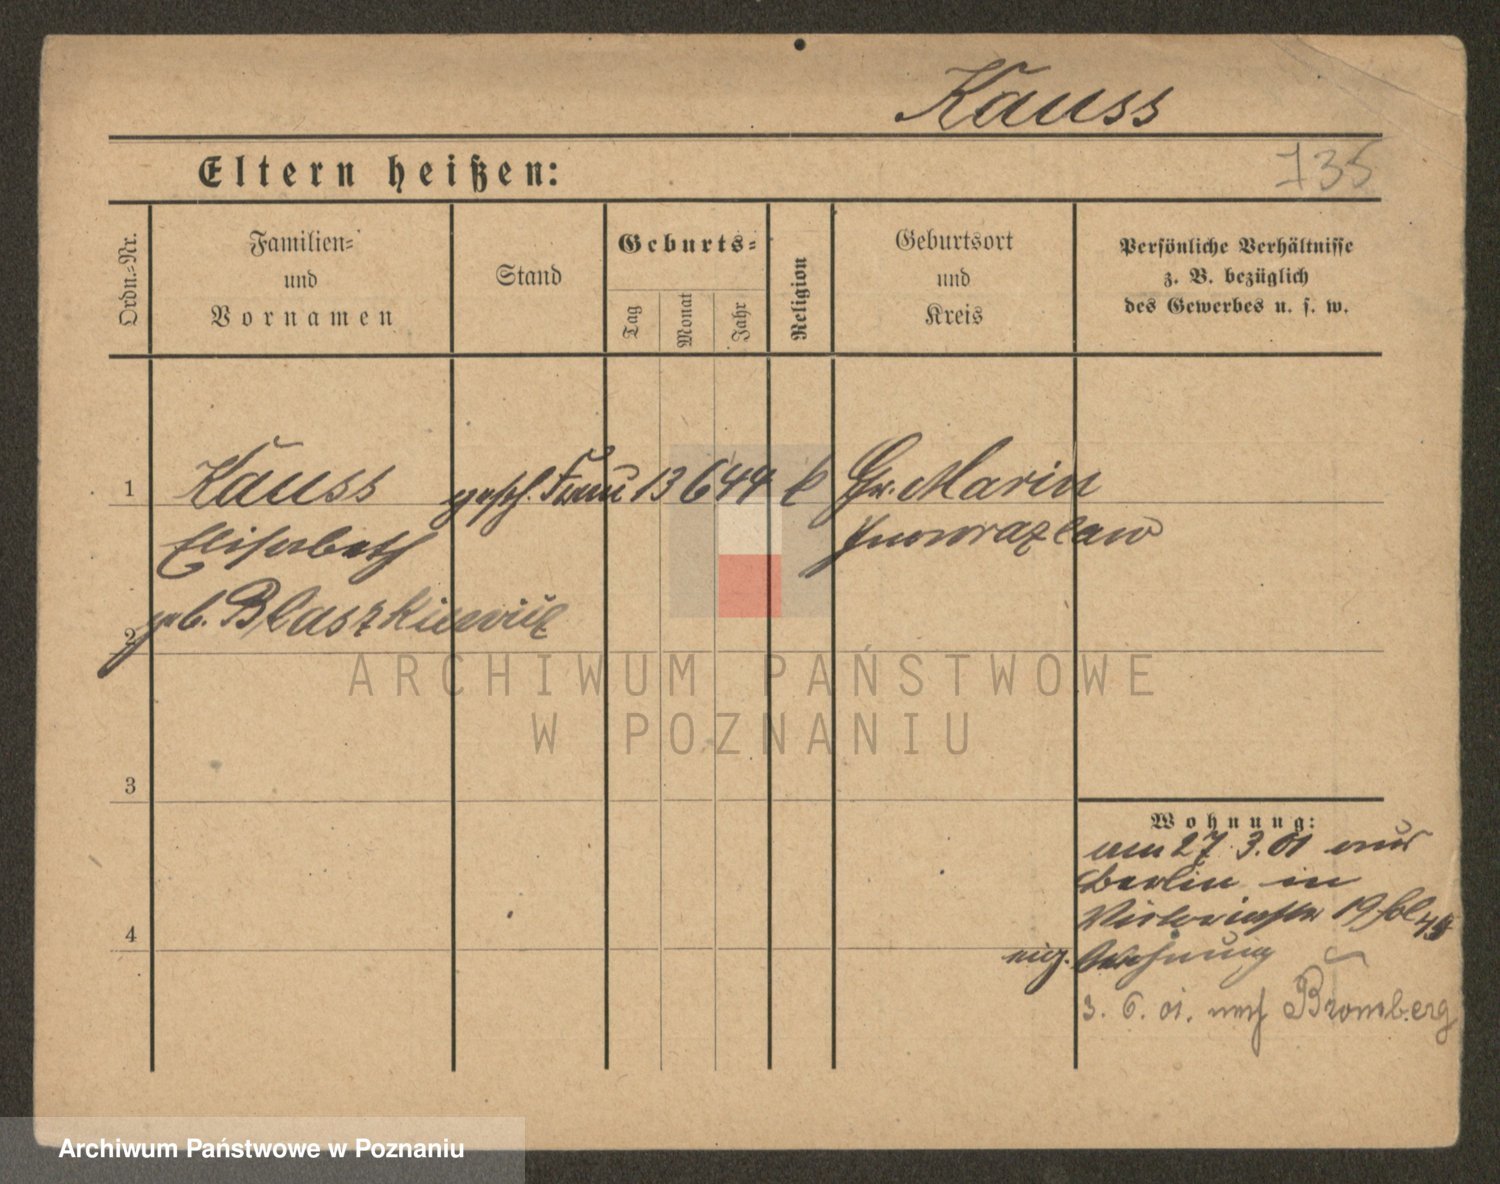 Kauss
135
Eltern heißen:
Ordn.-Nr.
Familien-
und
Vornamen
Stand
Geburts-
Tag
Monat
Jahr
Religion
Geburtsort
und
Kreis
Persönliche Verhältnisse
z. B. bezüglich
des Gewerbes u. s. w.
1 Kauss gesch. Frau 13 6 44 k Gr. Morin
Elisabeth Inowrazlaw
2 geb. Blaszkiewicz
ARCHIWUM PAŃSTWOWE
W POZNANIU
3
Wohnung:
am 27 3. 01 aus
Berlin in
Victoriastr 19
4
eig. Wohnung
3. 6. 01. nach Bromberg
Archiwum Państwowe w Poznaniu